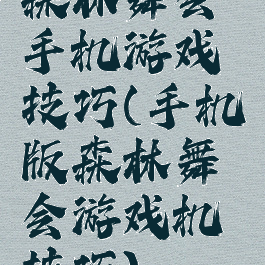 森林舞会
手机游戏
技巧(手机
版森林舞
会游戏机
技巧)